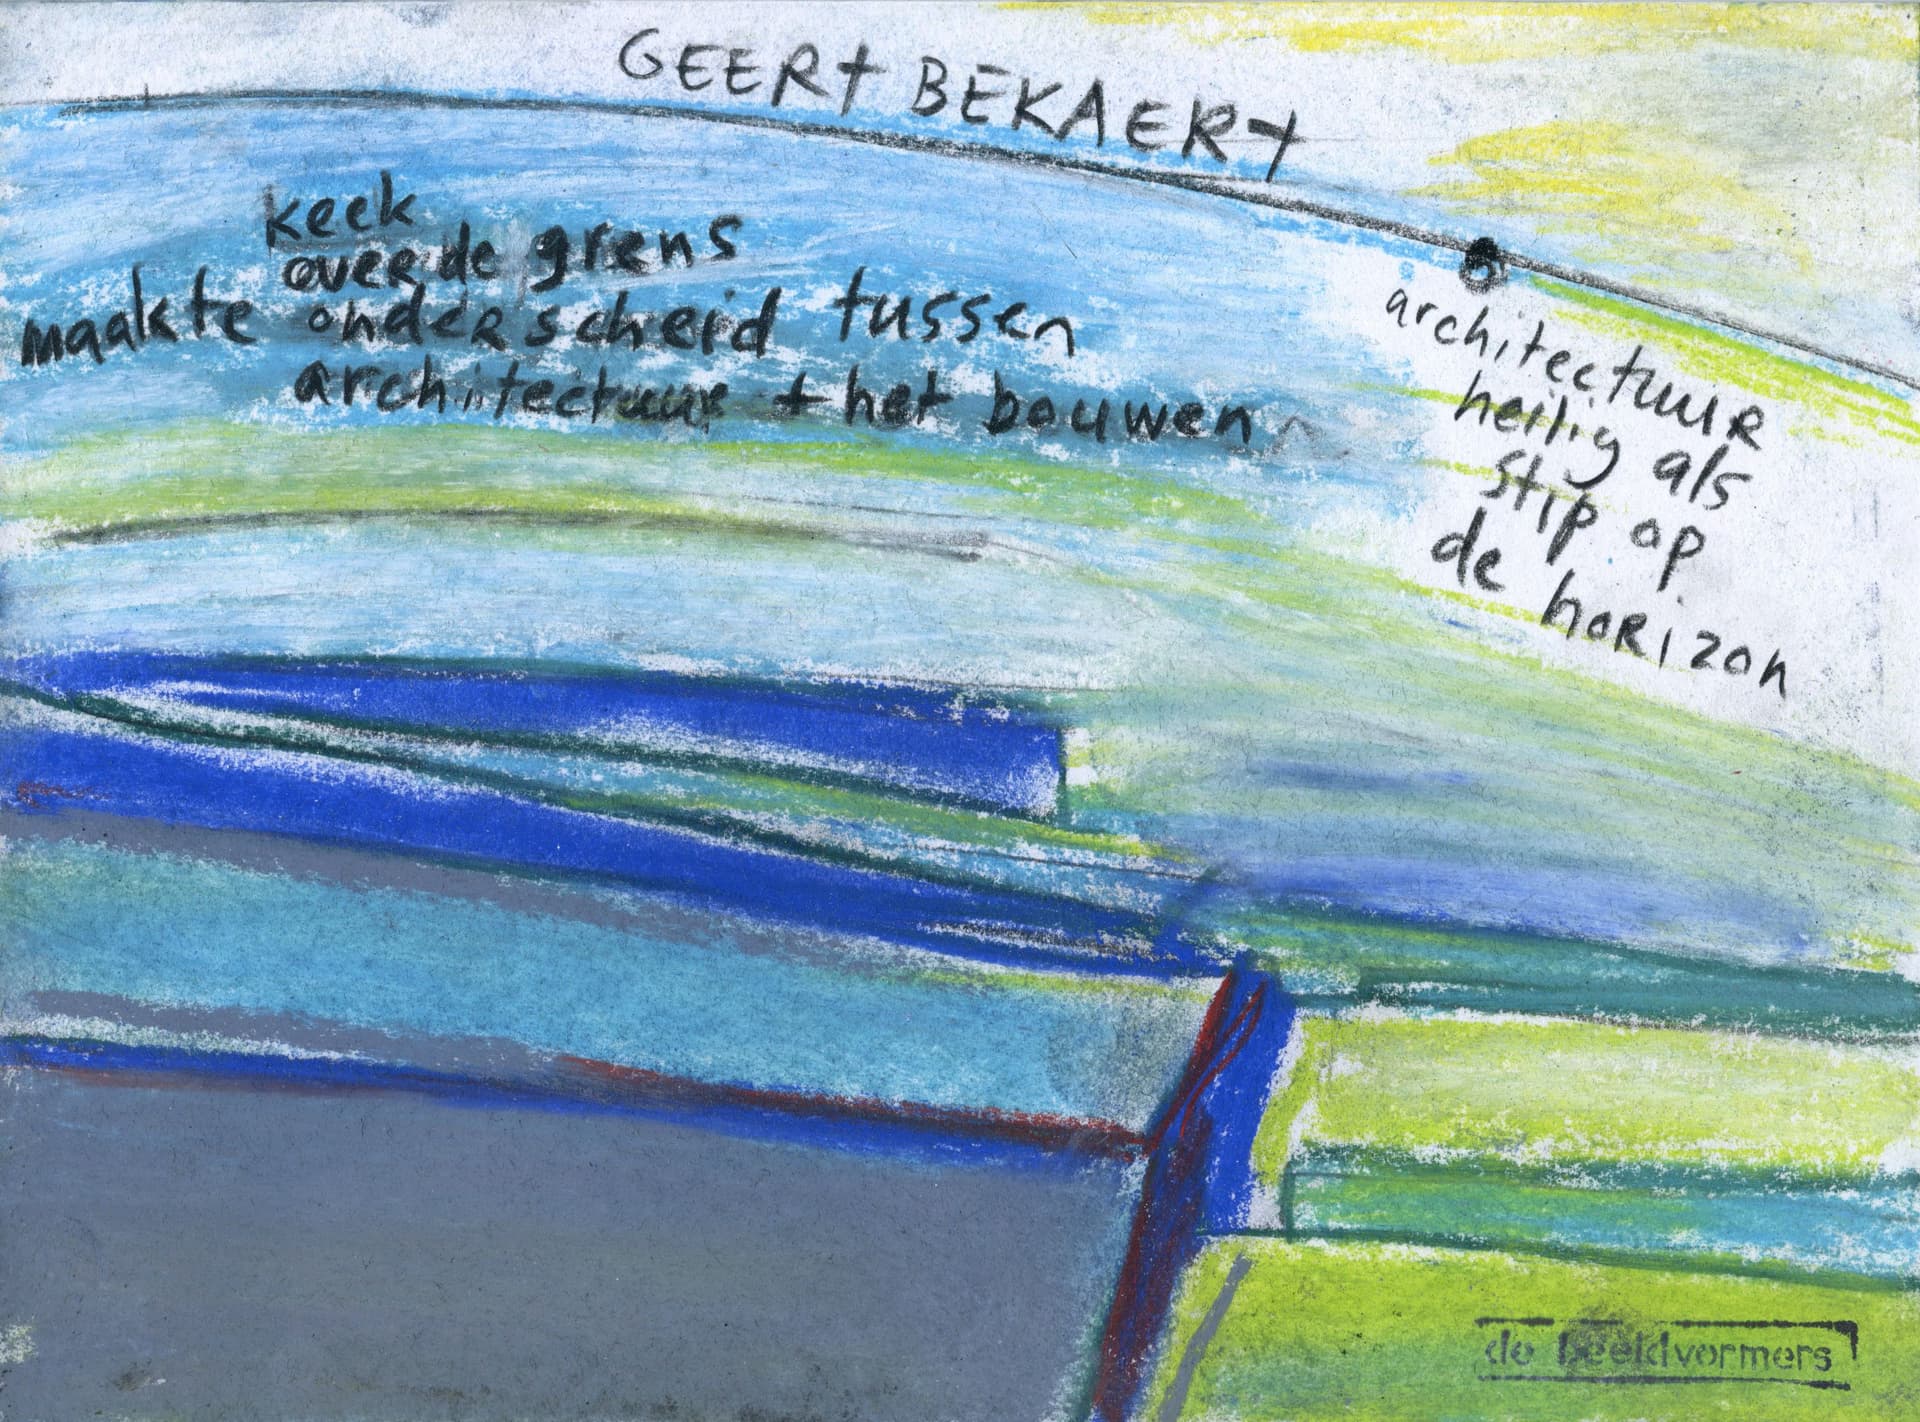 GEERT BEKAERT
keek
over de grens
maakte onderscheid tussen
architectuur + het bouwen
architectuur
heilig als
stip op
de horizon
de beeldvormers